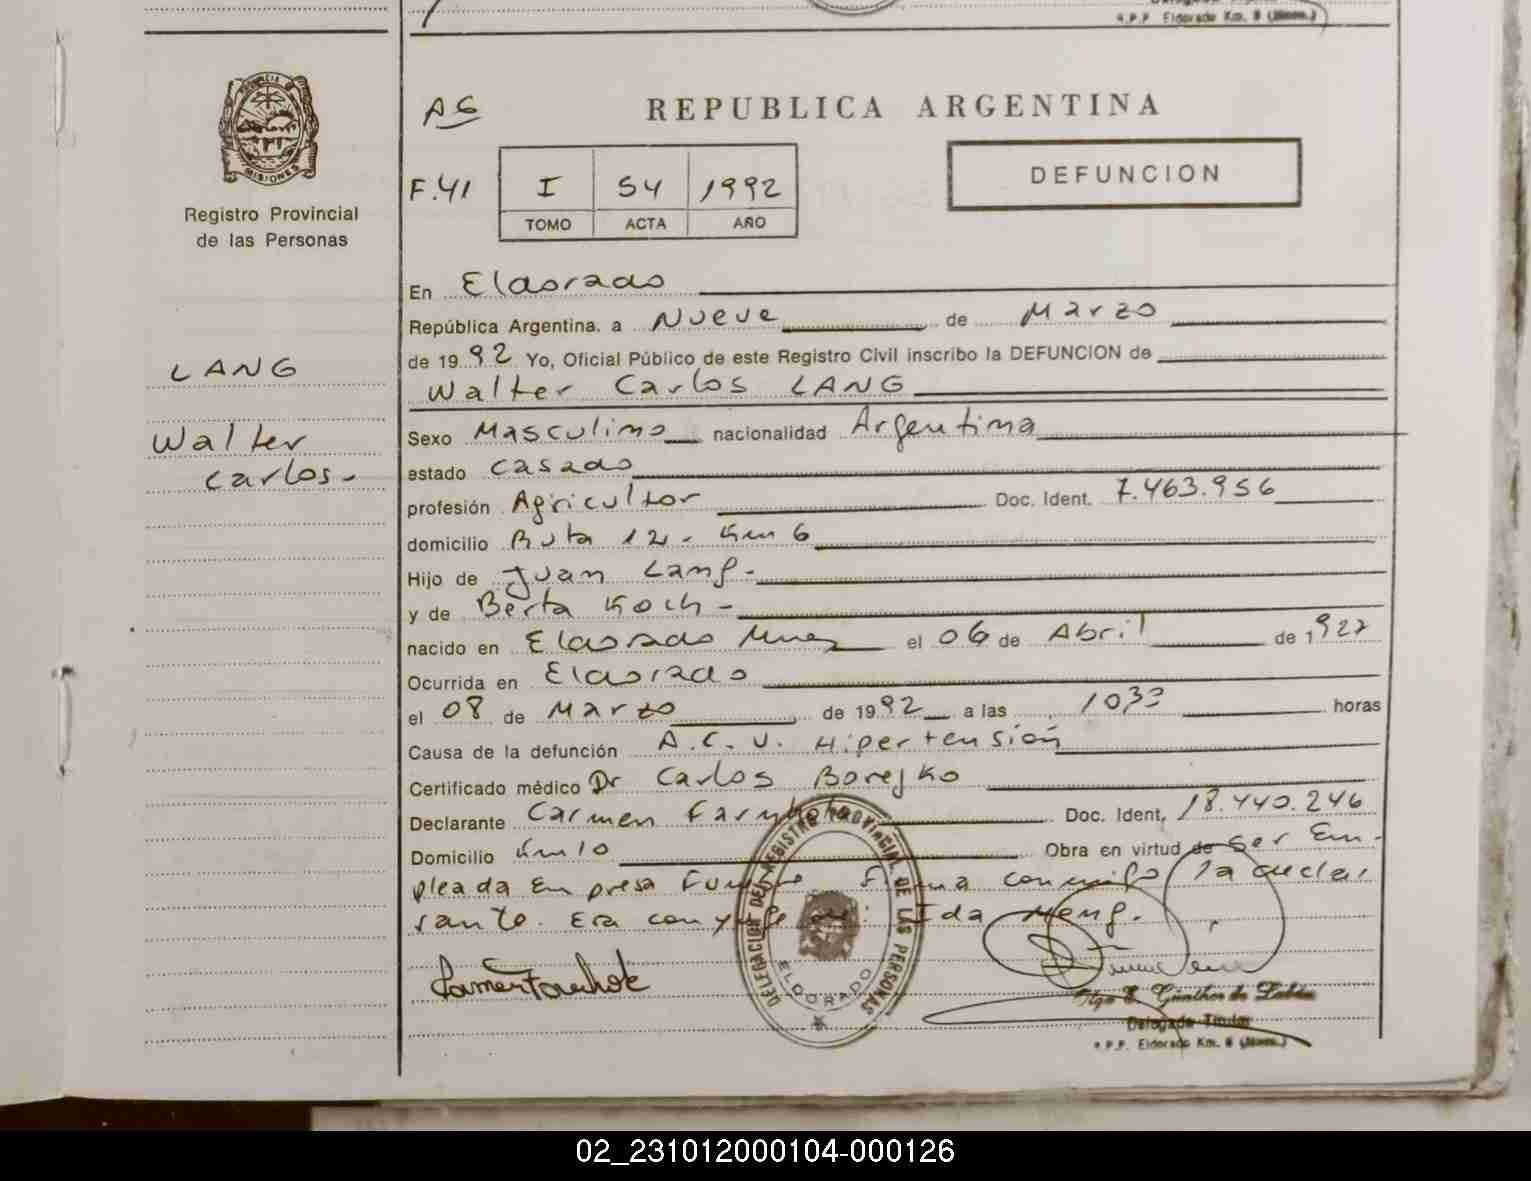 R.P.P. Eldorado Km. 9 (Mnes.)
PROVINCIA D
MISIONES
Registro Provincial
de las Personas
LANG
Walter
Carlos.-
REPUBLICA ARGENTINA
F.41 I 54 1992
TOMO ACTA AÑO
DEFUNCION
En Eldorado
República Argentina. a Nueve de Marzo
de 1992 Yo, Oficial Público de este Registro Civil inscribo la DEFUNCION de
Walter Carlos LANG
Sexo Masculino nacionalidad Argentina
estado casado
profesión Agricultor Doc. Ident. 7.463.956
domicilio Ruta 12. Km 6
Hijo de Juan Lang.-
y de Berta Koch -
nacido en Eldorado Mnes el 06 de Abril de 1927
Ocurrida en Eldorado
el 08 de Marzo de 1992 a las horas
Causa de la defunción A.C.V. Hipertensión
Certificado médico Dr Carlos Borejko
Declarante Carmen Doc. Ident. 18.440.246
Domicilio Km 10 Obra en virtud de ser Em-
pleada Empresa Funebre Firma conmigo la decla-
rante. Era conyuge de: Ida Meng.
DELEGACION DEL REGISTRO PROVINCIAL DE LAS PERSONAS
ELDORADO
Olga E. Günther de
Delegada Titular
R.P.P. Eldorado Km. 9 (Mnes.)
02_231012000104-000126